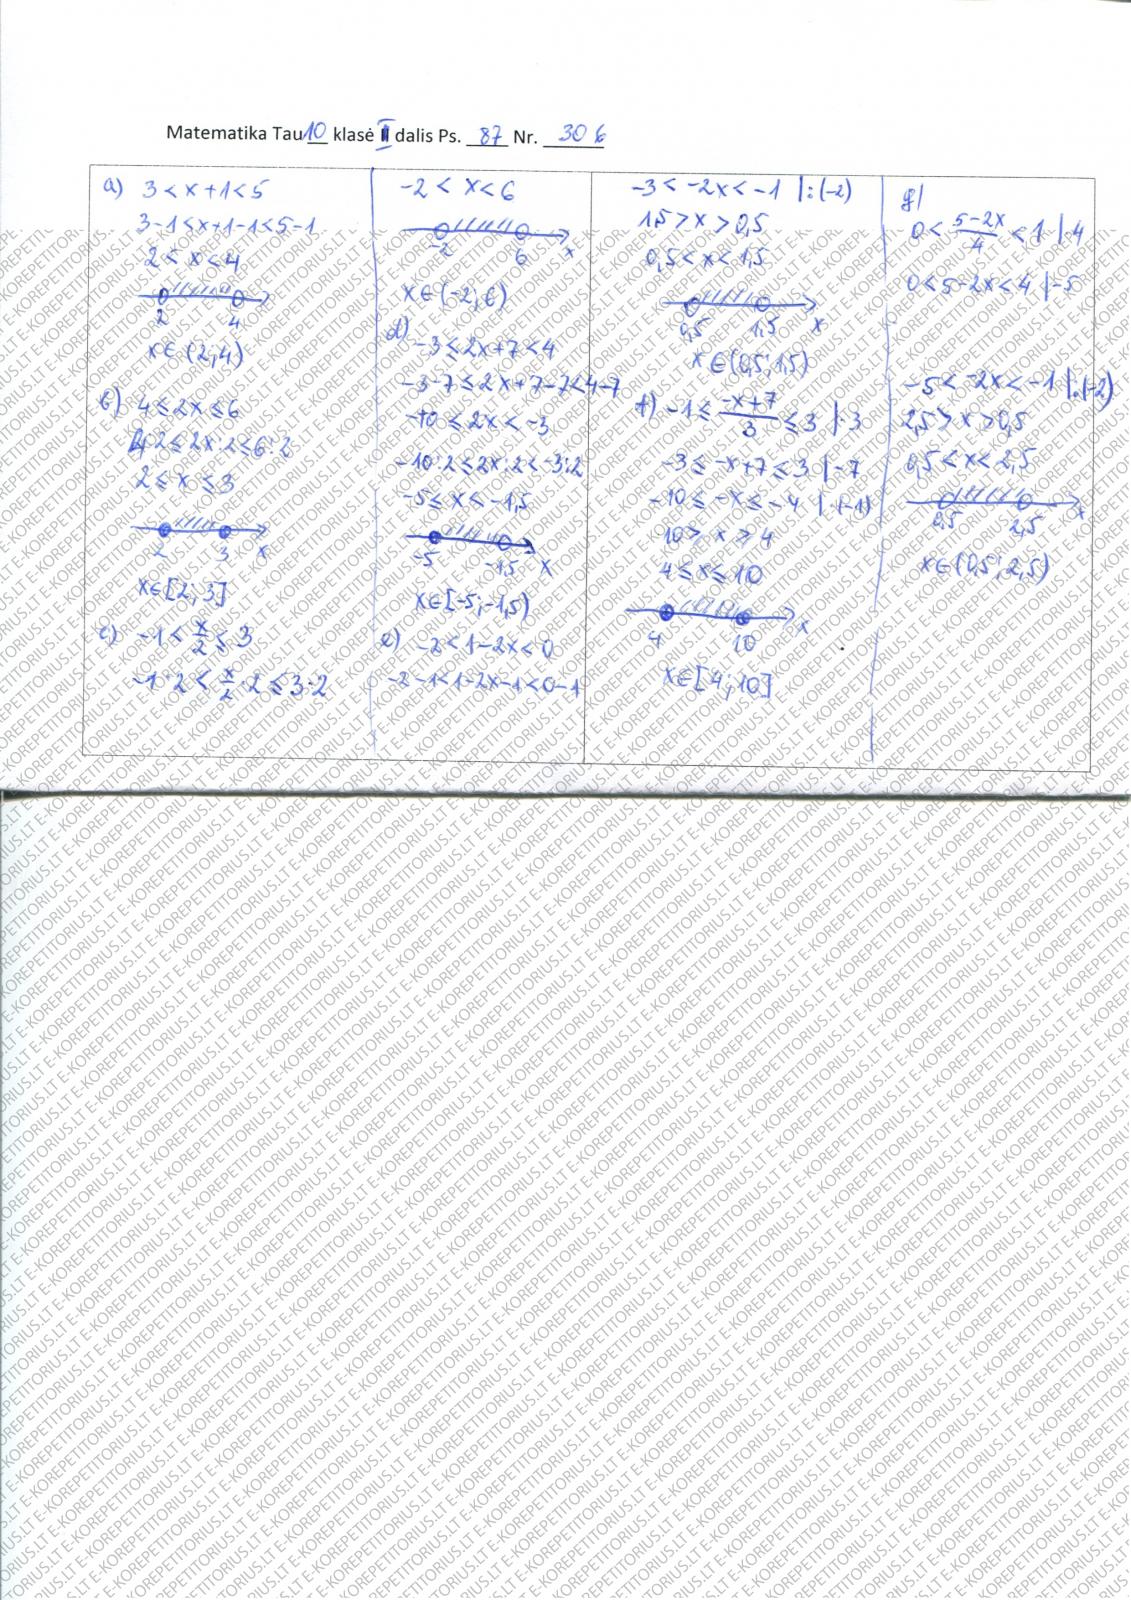 Matematika Tau 10 klasė II dalis Ps. 87 Nr. 306
a) 3 < x + 1 < 5
3-1 < x+1-1 < 5-1
2 < x < 4
2 4
x∈(2;4)
b) 4 ≤ 2x ≤ 6
4:2 ≤ 2x:2 ≤ 6:2
2 ≤ x ≤ 3
2 3 x
x∈[2;3]
c) -1 < x/2 ≤ 3
-1·2 < x/2·2 ≤ 3·2
-2 < x < 6
-2 6 x
x∈(-2;6)
d) -3 ≤ 2x+7 < 4
-3-7 ≤ 2x+7-7 < 4-7
-10 ≤ 2x < -3
-10:2 ≤ 2x:2 < -3:2
-5 ≤ x < -1,5
-5 -1,5 x
x∈[-5;-1,5)
e) -2 < 1-2x < 0
-2-1 < 1-2x-1 < 0-1
-3 < -2x < -1 |:(-2)
1,5 > x > 0,5
0,5 < x < 1,5
0,5 1,5 x
x∈(0,5;1,5)
f) -1 ≤ (-x+7)/3 ≤ 3 |·3
-3 ≤ -x+7 ≤ 3 |-7
-10 ≤ -x ≤ -4 |·(-1)
10 ≥ x ≥ 4
4 ≤ x ≤ 10
4 10 x
x∈[4;10]
g)
0 < (5-2x)/4 < 1 |·4
0 < 5-2x < 4 |-5
-5 < -2x < -1 |:(-2)
2,5 > x > 0,5
0,5 < x < 2,5
0,5 2,5 x
x∈(0,5;2,5)
E-KOREPETITORIUS.LT